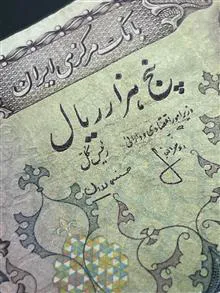 بانک مرکزی ایران
پنج هزار ریال
وزیر امور اقتصادی و دارائی
رئیس کل